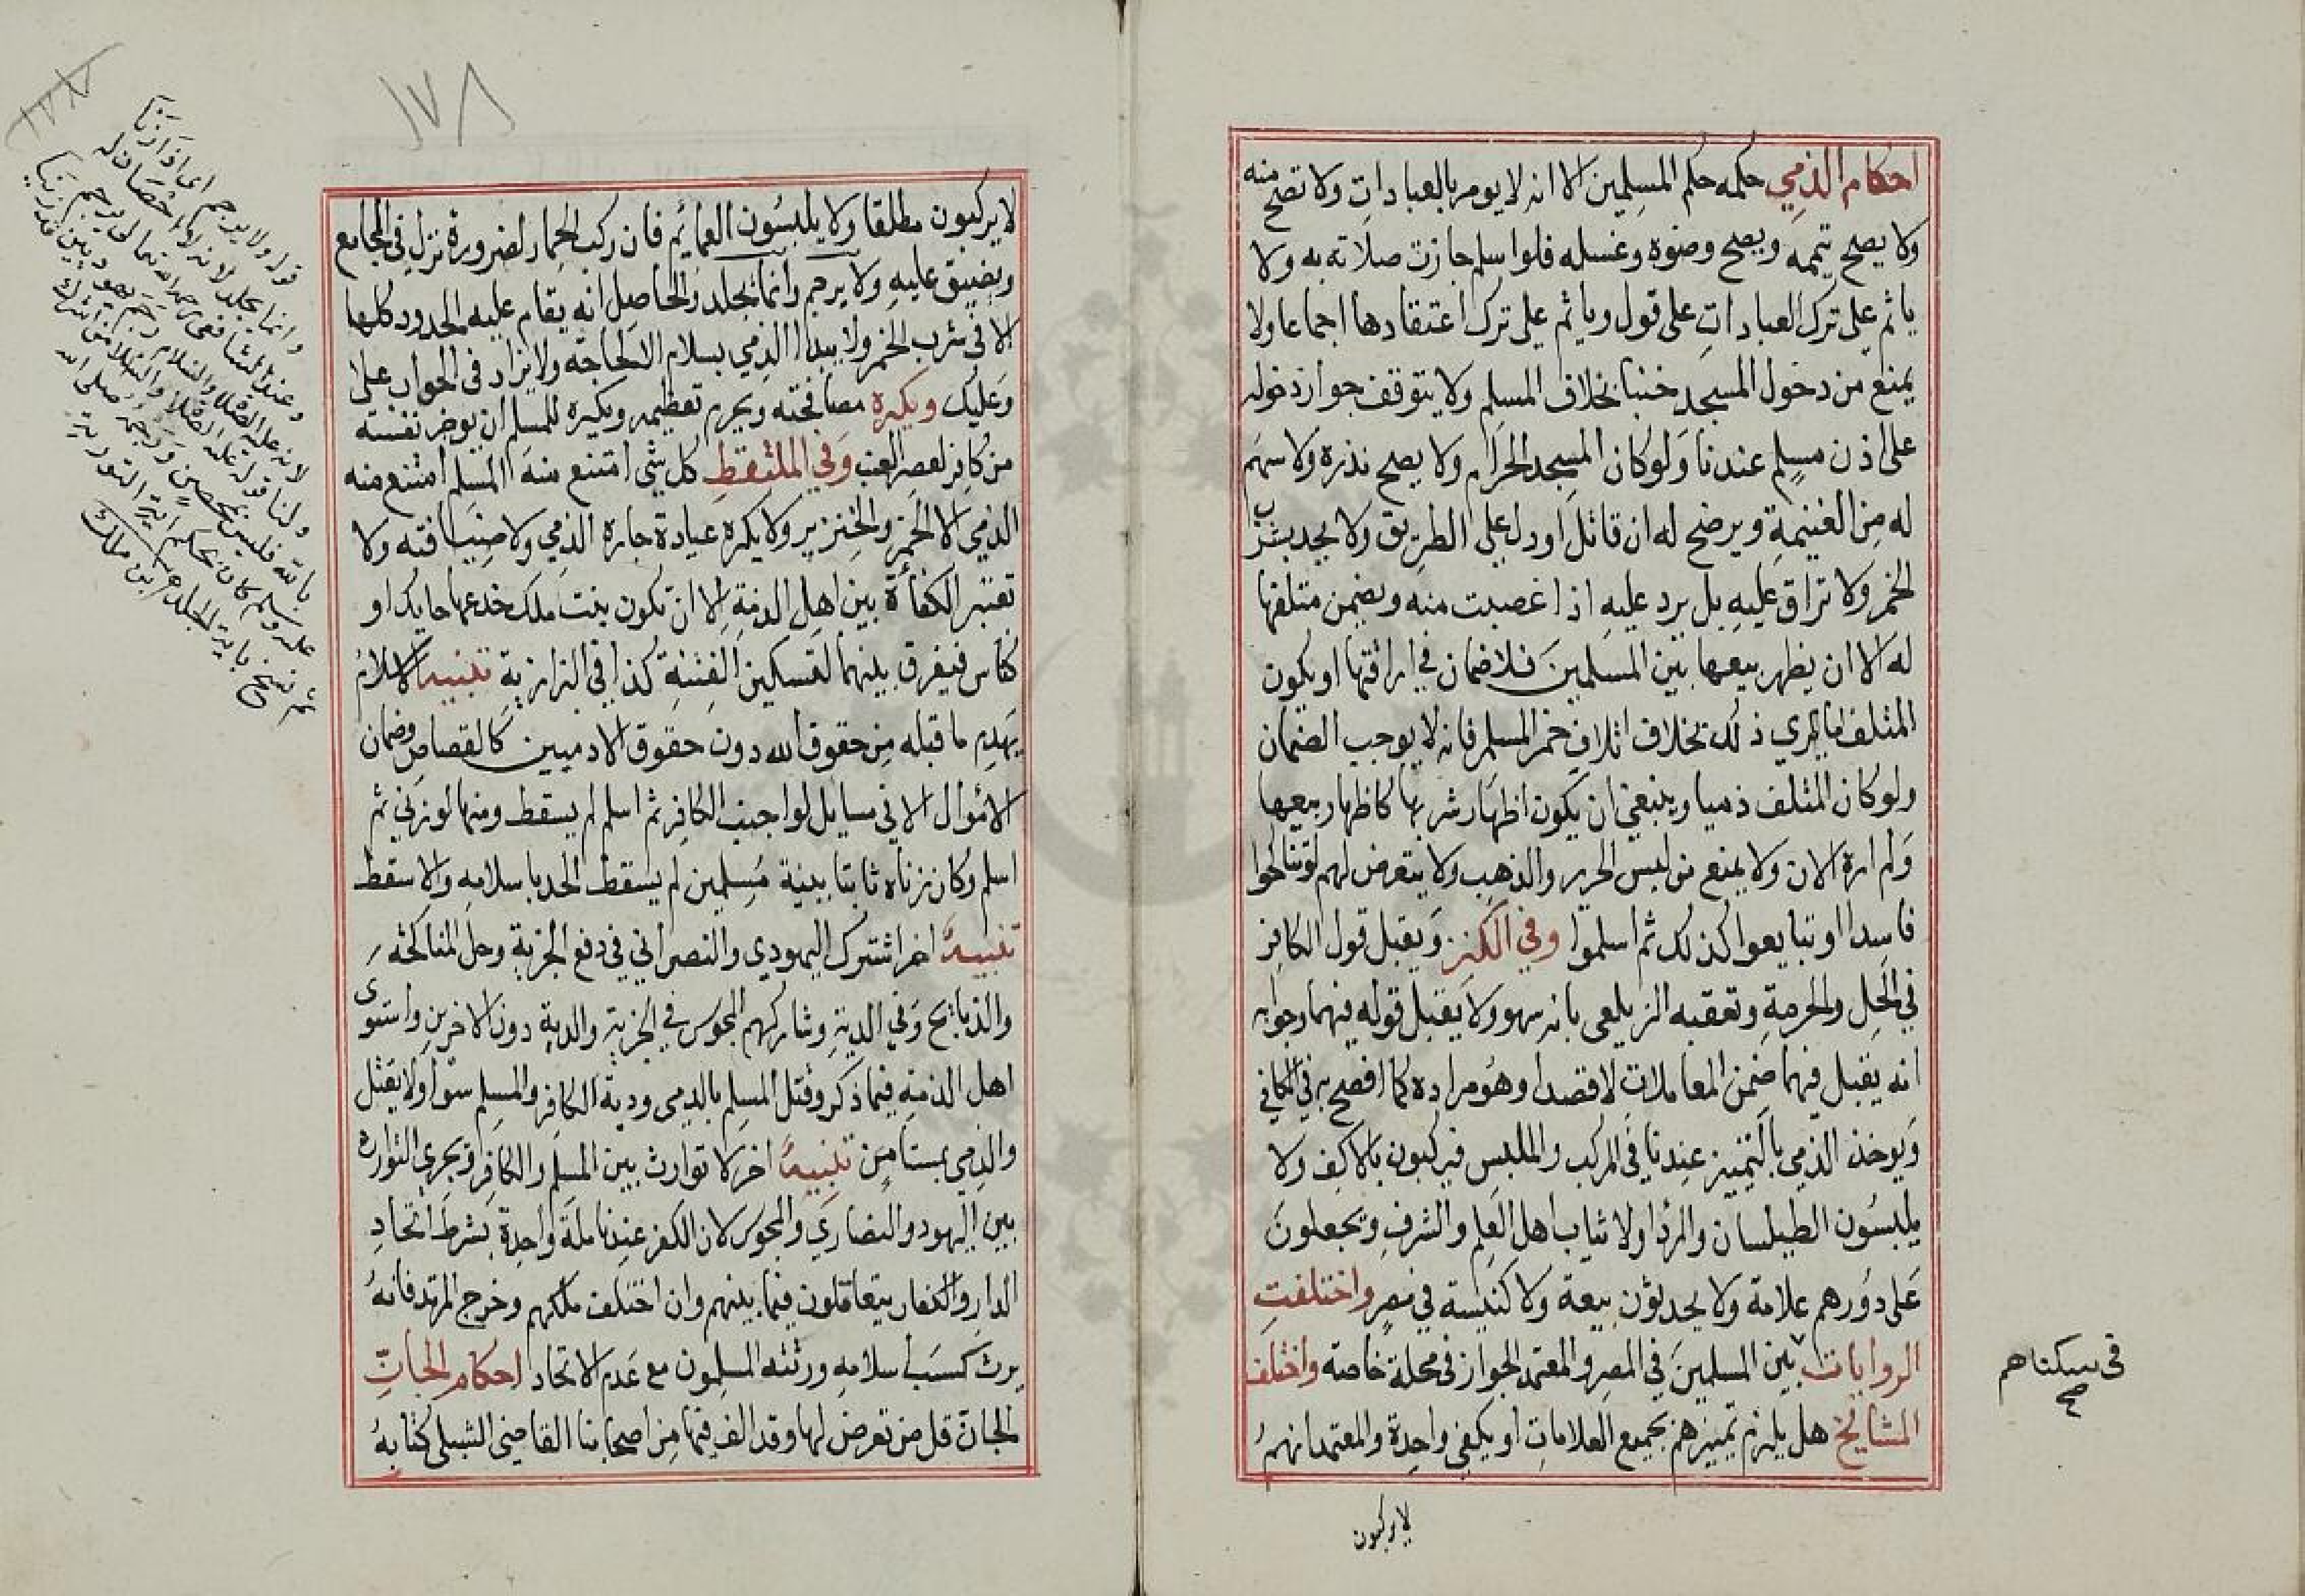 احكام الذمي حكمه حكم المسلمين الا انه لا يومر بالعبادات ولا تصح منه
ولا يصح تيممه ويصح وضوه وغسله فلو اسلم جازت صلاته به ولا
ياثم على ترك العبادات على قول وياثم على ترك اعتقادها اجماعا ولا
يمنع من دخول المسجد جنبا بخلاف المسلم ولا يتوقف جواز دخوله
على اذن مسلم عندنا ولو كان المسجد الحرام ولا يصح نذره ولا سهم
له من الغنيمة ويرضح له ان قاتل او دل على الطريق ولا يحد بشرب
الخمر ولا تراق عليه بل يرد عليه اذا غصبت منه ويضمن متلفها
له الا ان يظهر بيعها بين المسلمين فلا ضمان في اراقتها او يكون
المتلف يرى ذلك بخلاف اتلاف خمر المسلم فانه لا يوجب الضمان
ولو كان المتلف ذميا وينبغي ان يكون اظهار شربها كاظهار بيعها
ولم اره الان ولا يمنع من لبس الحرير والذهب ولا يتعرض لهم لو تناكحوا
فاسدا او تبايعوا كذلك ثم اسلموا وفي الكنز ويقبل قول الكافر
في الحل والحرمة وتعقبه الزيلعي بانه سهو ولا يقبل قوله فيهما وجوابه
انه يقبل فيهما ضمن المعاملات لا قصدا وهو مراده كما افصح به في الكافي
ويوخذ الذمي بالتمييز عندنا في المركب والملبس فيركبون بالاكف ولا
يلبسون الطيلسان والردا ولا ثياب اهل العلم والشرف وتجعلون
على دورهم علامة ولا يحدثون بيعة ولا كنيسة في مصر واختلفت
الروايات بين المسلمين في المصر والمعتمد الجواز في محلة خاصة واختلف
في سكناهم صح
المشايخ هل يلزم تمييزهم بجميع العلامات او يكفي واحدة والمعتمد انهم
لا يركبون
١٧٨
١٧٨
لا يركبون مطلقا ولا يلبسون العمائم فان ركب الحمار لضرورة نزل في المجامع
ويضيق عليه ولا يرجم وانما يجلد والحاصل انه يقام عليه الحدود كلها
الا في شرب الخمر ولا يبدا الذمي بسلام الا لحاجة ولا يزاد في الجواب على
وعليك ويكره مصافحته ويحرم تعظيمه ويكره للمسلم ان يوجر نفسه
من كافر لعصر العنب وفي الملتقط كل شي امتنع منه المسلم امتنع منه
الذمي الا الخمر والخنزير ولا يكره عيادة جاره الذمي ولا ضيافته ولا
تعتبر الكفاءة بين اهل الذمة الا ان تكون بنت ملك خدعها حايك او
كناس فيفرق بينهما لتسكين الفتنة كذا في البزازية تنبيه الاسلام
يهدم ما قبله من حقوق الله دون حقوق الادميين كالقصاص وضمان
الاموال الا في مسايل لو اجنب الكافر ثم اسلم لم يسقط ومنها لو زنى ثم
اسلم وكان زناه ثابتا ببينة مسلمين لم يسقط الحد باسلامه والا سقط
تنبيه اخر اشترك اليهودي والنصراني في دفع الجزية وحل المناكحة
والذبايح وفي الدية وشاركهم المجوس في الجزية والدية دون الاخرين واستوى
اهل الذمة فيما ذكر وقتل المسلم بالذمي ودية الكافر والمسلم سوا ولا يقتل
والذمي بمستامن تنبيه اخر لا توارث بين المسلم والكافر ويجري التوارث
بين اليهود والنصارى والمجوس لان الكفر عندنا ملة واحدة بشرط اتحاد
الدار والكفار يتعاقلون فيما بينهم وان اختلف ملكهم وخرج المرتد فانه
يرث كسب اسلامه ورثته المسلمون مع عدم الاتحاد احكام الجان
الجان قل من تعرض لها وقد الف فيها من اصحابنا القاضي الشبلي كتابه
قوله ولا يرجم اى اذا زنا
وانما يجلد لانه لا احصان له
وعند الشافعى رحمه الله تعالى يرجم
لانه عليه الصلاة والسلام رجم يهوديين قد زنيا
ولنا قوله عليه الصلاة والسلام من اشرك
بالله فليس بمحصن ورجمه صلى الله
عليه وسلم كان بحكم اية التورية
ثم نسخ باية الجلد ابن ملك